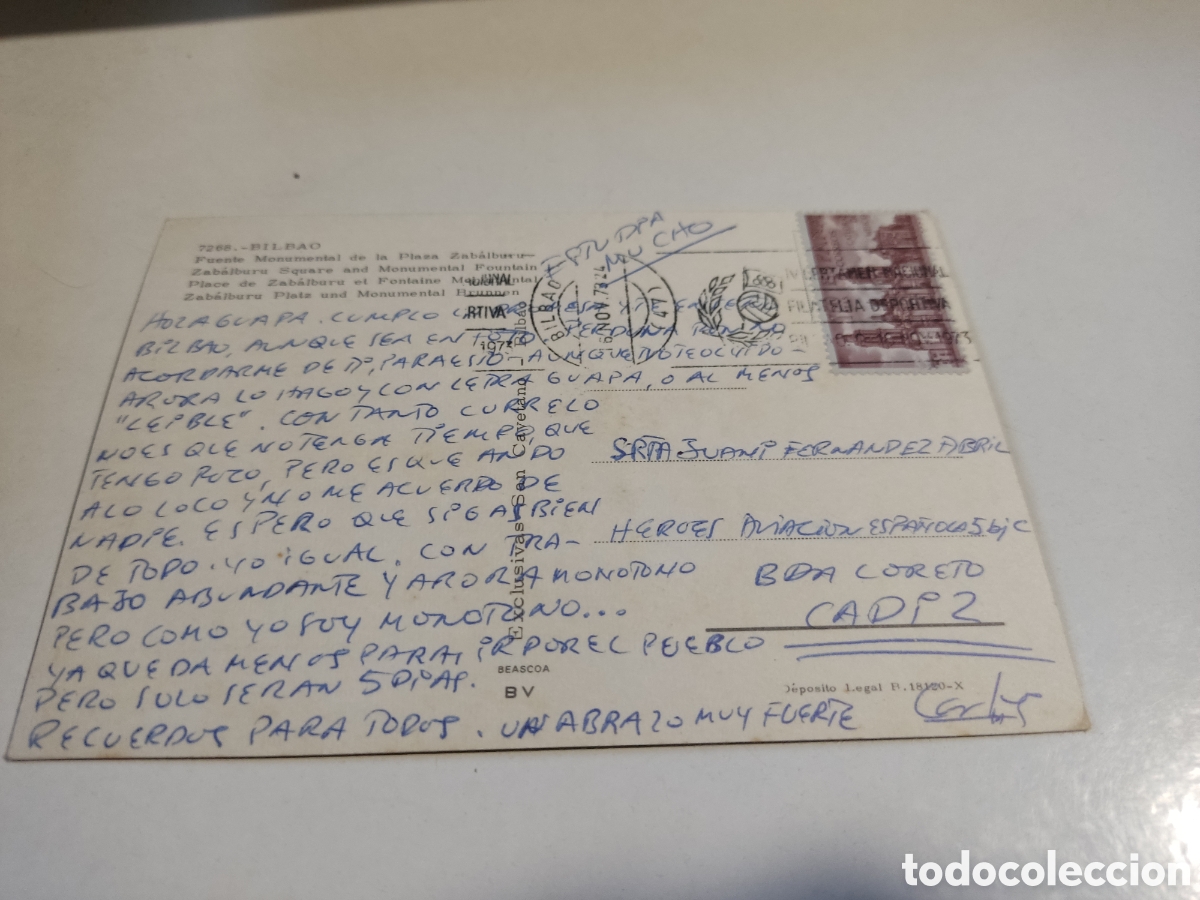 7268.-BILBAO
Fuente Monumental de la Plaza Zabálburu
Zabálburu Square and Monumental Fountain
Place de Zabálburu et Fontaine Monumental
Zabálburu Platz und Monumental Brunnen
ESTUDIA
MUCHO
BILBAO
16 NOV. 73
(44)
RTIVA
1973
FILATELIA DEPORTIVA
1973
HOLA GUAPA. CUMPLO
BILBAO, AUNQUE SEA EN PERDONA
ACORDARME DE TI, PARA ESTO. AUNQUE NO TE OLVIDO
AHORA LO HAGO Y CON LETRA GUAPA, O AL MENOS
"LEIBLE". CON TANTO CURRELO
NO ES QUE NO TENGA TIEMPO, QUE
TENGO POZO, PERO ES QUE ANDO
A LO LOCO Y NO ME ACUERDO DE
NADIE. ESPERO QUE SIGAS BIEN
DE TODO. YO IGUAL. CON TRA-
BAJO ABUNDANTE Y AHORA MONOTONO
PERO COMO YO SOY MONOTONO...
YA QUEDA MENOS PARA IR POR EL PUEBLO
PERO SOLO SERAN 5 DIAS.
RECUERDOS PARA TODOS. UN ABRAZO MUY FUERTE
Carlos
SRTA JUANI FERNANDEZ ABRIL
HEROES AVIACION ESPAÑOLA 5 bj C
BDA LORETO
CADIZ
Exclusivas San Cayetano - Bilbao
BEASCOA
BV
Deposito Legal B.18120-X
todocoleccion